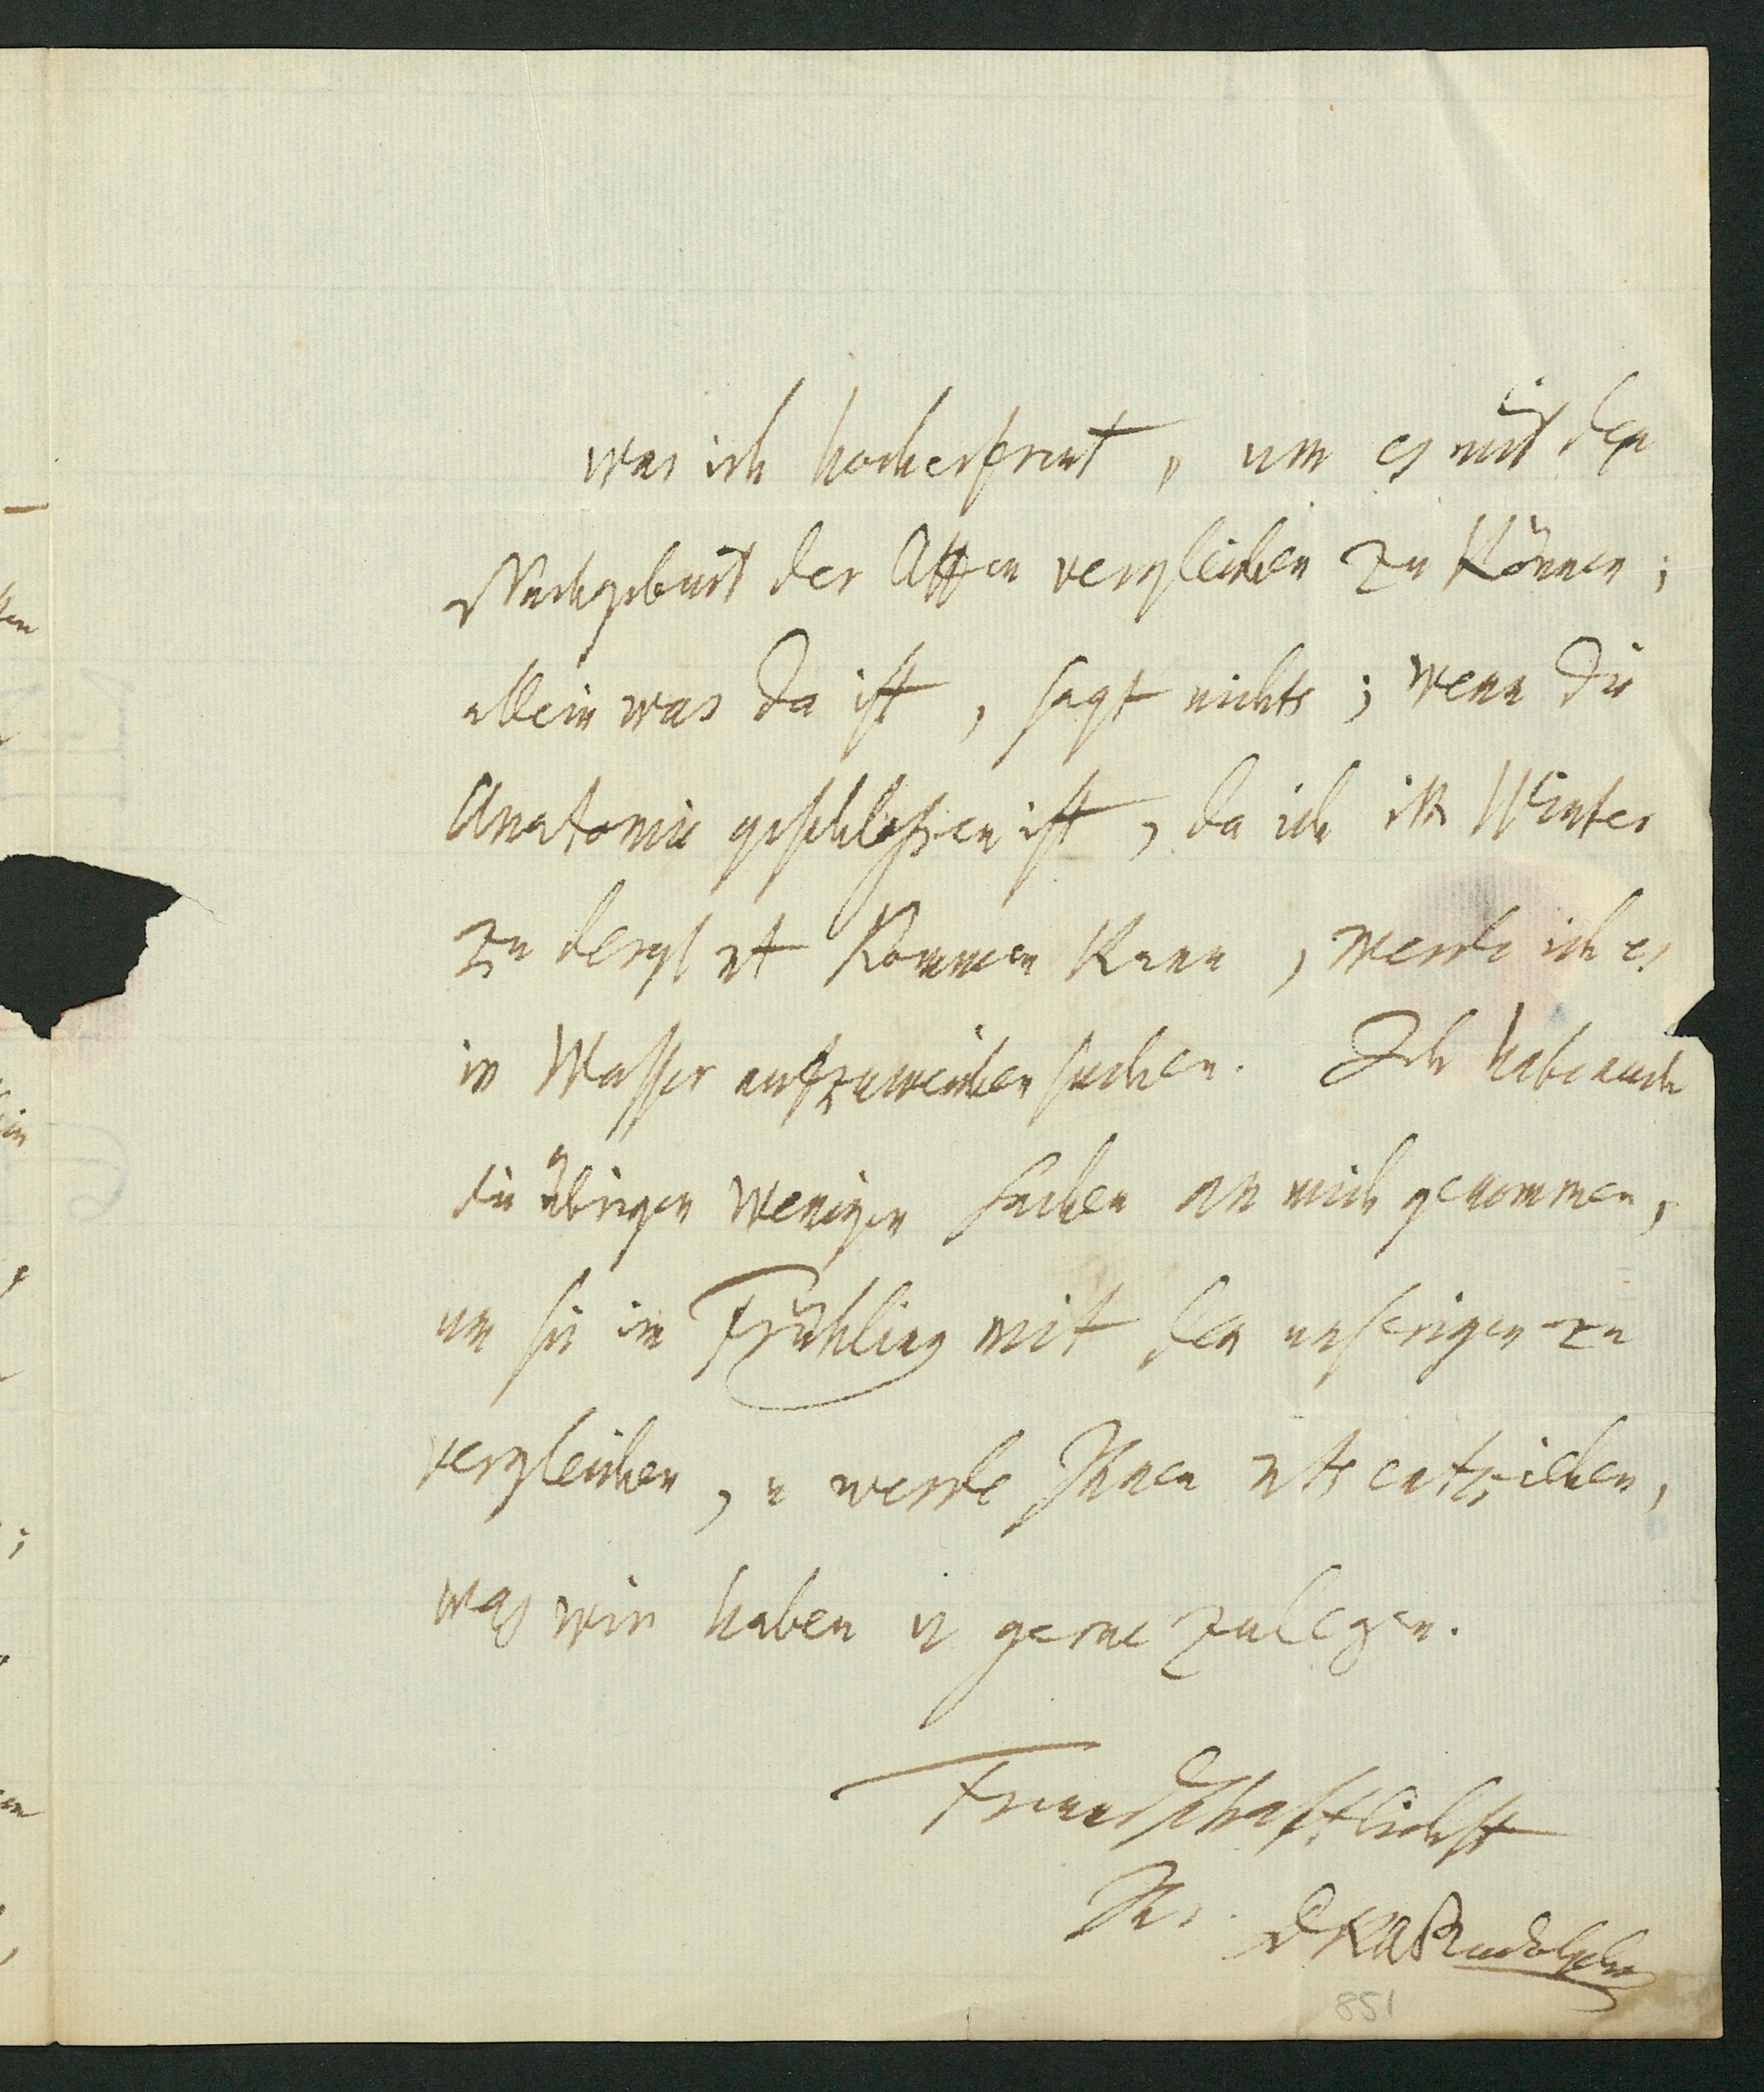 war ich hocherfreut, um es mit der
Nachgeburt der Affen vergleichen zu können;
allein was da ist, sagt nichts; wenn die
Anatomie geschlossen ist, da ich im Winter
zu dergl nt kommen kann, werde ich es
in Wasser aufzuweichen suchen. Ich habe auch
die übrigen wenigen Sachen an mich genommen,
um sie im Frühling mit den unserigen zu
vergleichen, u werde Ihnen nts entziehen,
was wir haben u gerne zulegen.
Freundschaftlichst
Ihr. D KARudolphi
851